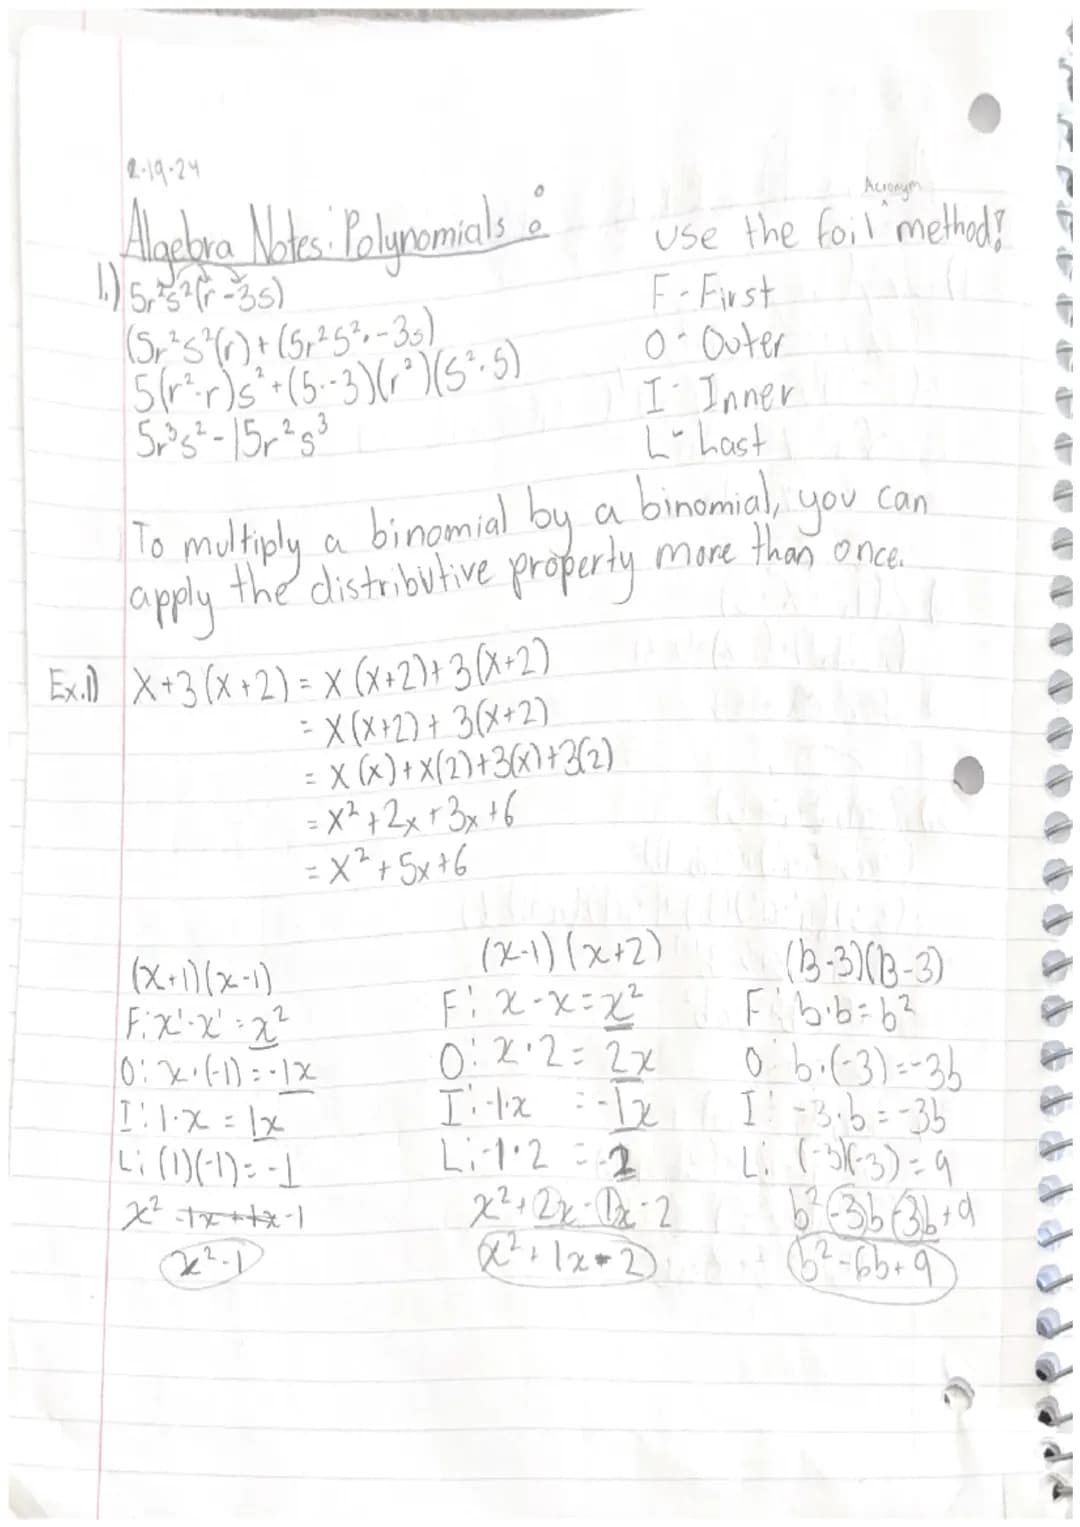 2-19-24
Algebra Notes: Polynomials:
1.) 5r²s²(r-3s)
(5r²s²(r)+(5r²s²·-3s)
5(r²·r)s²+(5·-3)(r²)(s²·s)
5r³s²-15r²s³
Acronym
Use the foil ^ method!
F-First
O-Outer
I-Inner
L-Last
To multiply a binomial by a binomial, you can
apply the distributive property more than once.
Ex.1) x+3(x+2) = x(x+2)+3(x+2)
= x(x+2)+3(x+2)
= x(x)+x(2)+3(x)+3(2)
= x²+2x+3x+6
= x²+5x+6
(x+1)(x-1)
F: x¹·x¹=x²
O: x·(-1)=-1x
I: 1·x=1x
L: (1)(-1)=-1
x²-1x+1x-1
x²-1
(x-1)(x+2)
F: x-x=x²
O: x·2=2x
I: -1·x =-1x
L: -1·2 =-2
x²+2x-1x-2
x²+1x-2
(B-3)(B-3)
F: b·b=b²
O: b·(-3)=-3b
I: -3·b=-3b
L: (-3)(-3)=9
b²-3b-3b+9
b²-6b+9